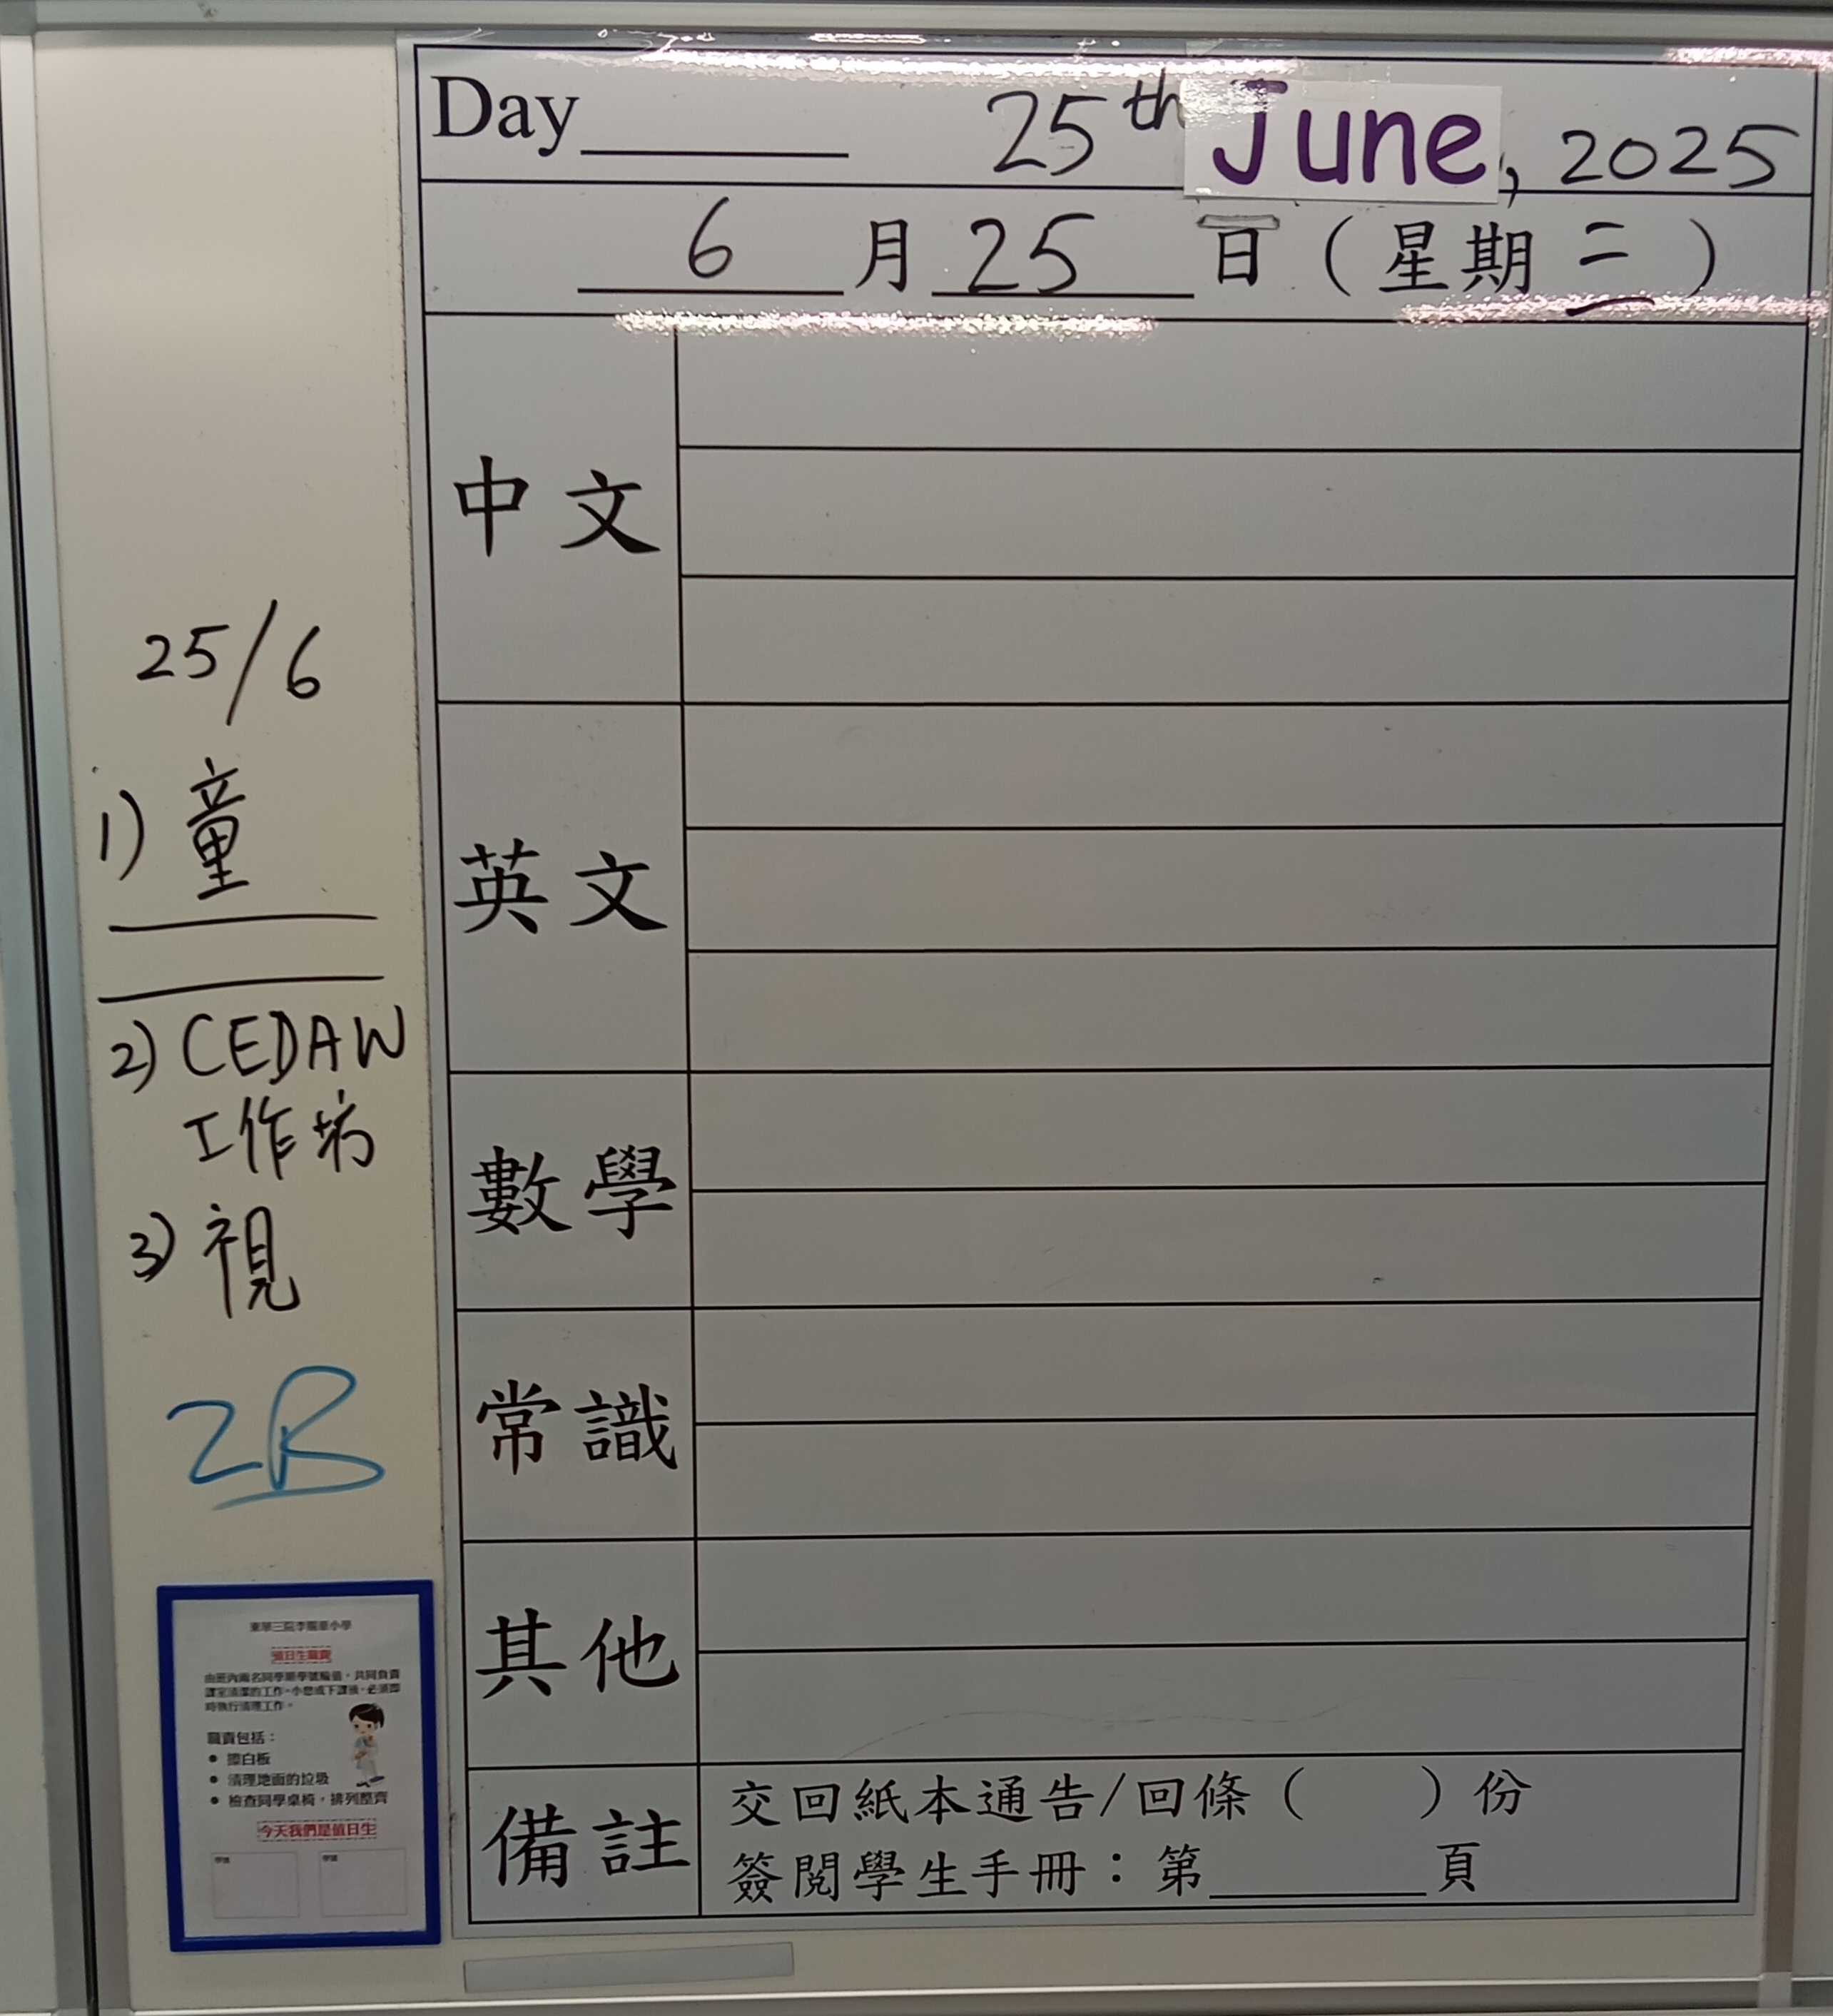 Day______ 25th June, 2025
6 月 25 日（星期 三 ）
中文
英文
數學
常識
其他
備註
交回紙本通告/回條（ ）份
簽閱學生手冊：第______頁
25/6
1) 童
2) CEDAW
工作坊
3) 視
2B
值日生職責
由班內兩名同學順學號輪值，共同負責
課室清潔的工作。小息或下課後，必須即
時執行清理工作。
職責包括：
● 擦白板
● 清理地面的垃圾
● 檢查同學桌椅，排列整齊
今天我們是值日生
學號
學號